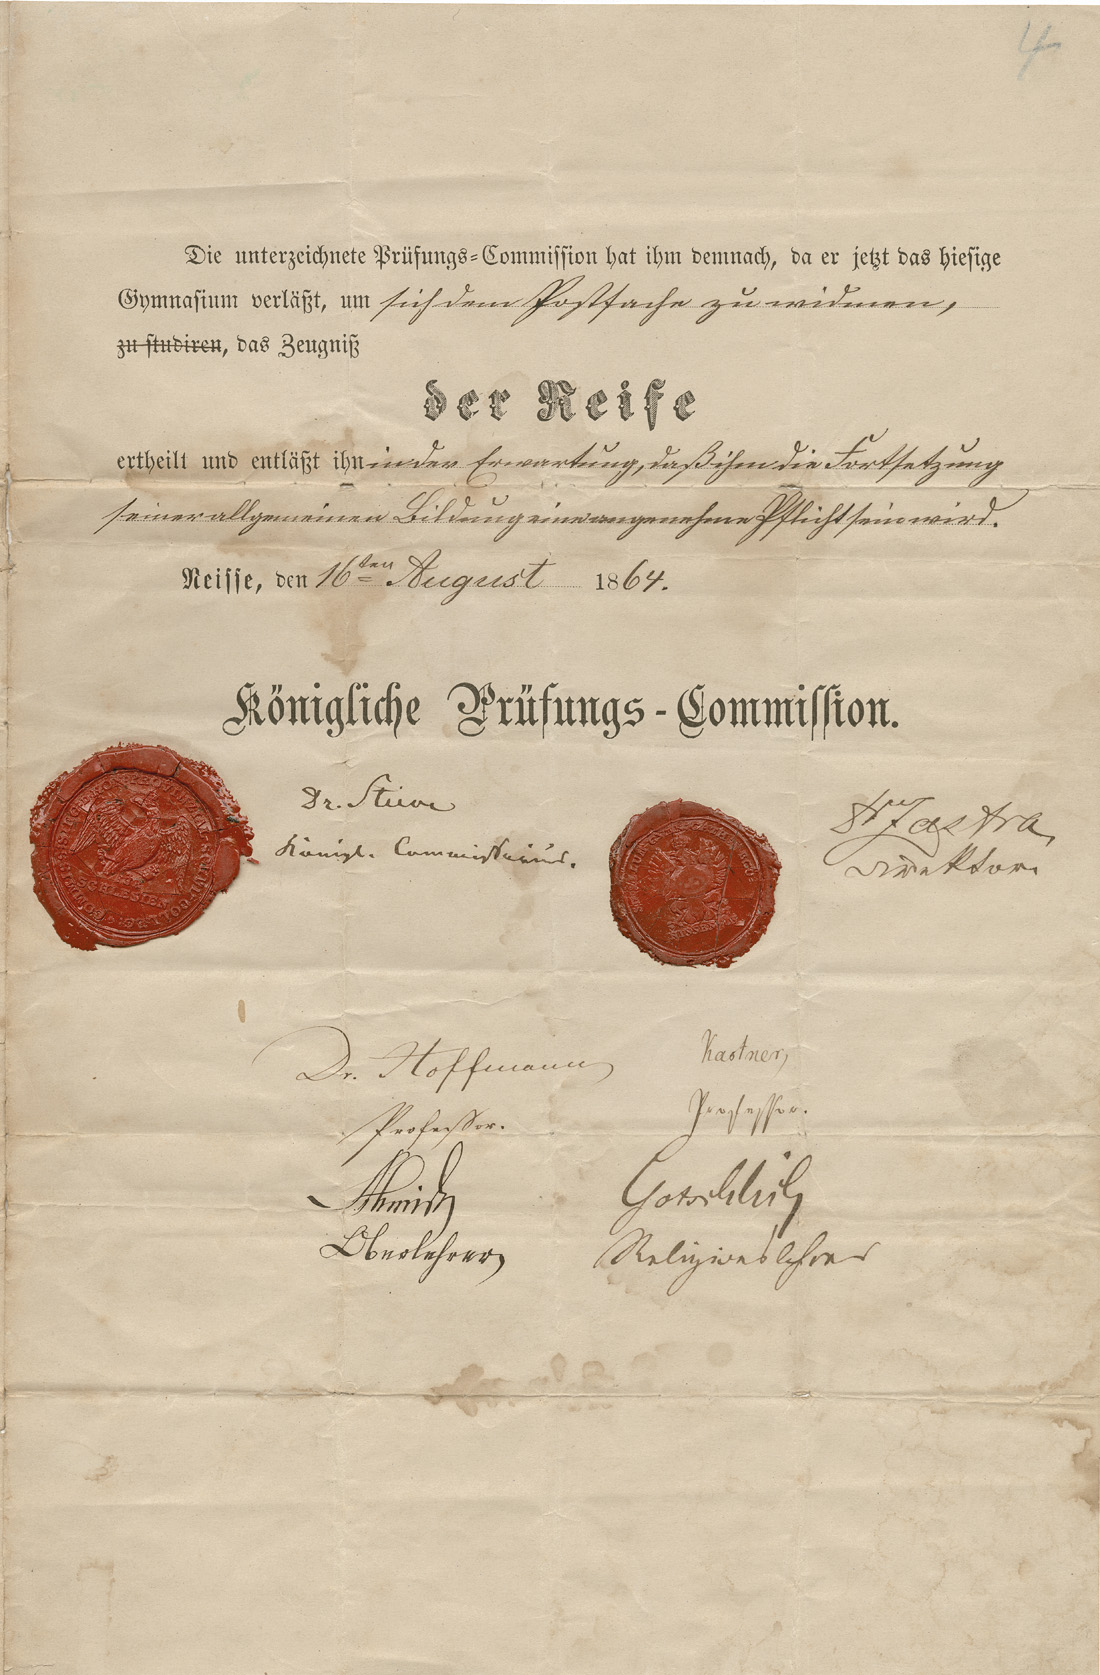 4
Die unterzeichnete Prüfungs-Commission hat ihm demnach, da er jetzt das hiesige
Gymnasium verläßt, um sich dem Postfache zu widmen,
zu studiren, das Zeugniß
der Reife
ertheilt und entläßt ihn in der Erwartung, daß ihm die Fortsetzung
seiner allgemeinen Bildung eine angenehme Pflicht sein wird.
Neisse, den 16ten August 1864.
Königliche Prüfungs-Commission.
Dr. Stieve
Königl. Commissarius.
Dr Zastra,
Direktor.
SCHLESIEN
Dr. Hoffmann
Kastner,
Professor.
Professor.
Schmidt
Gotschlich
Oberlehrer
Religionslehrer